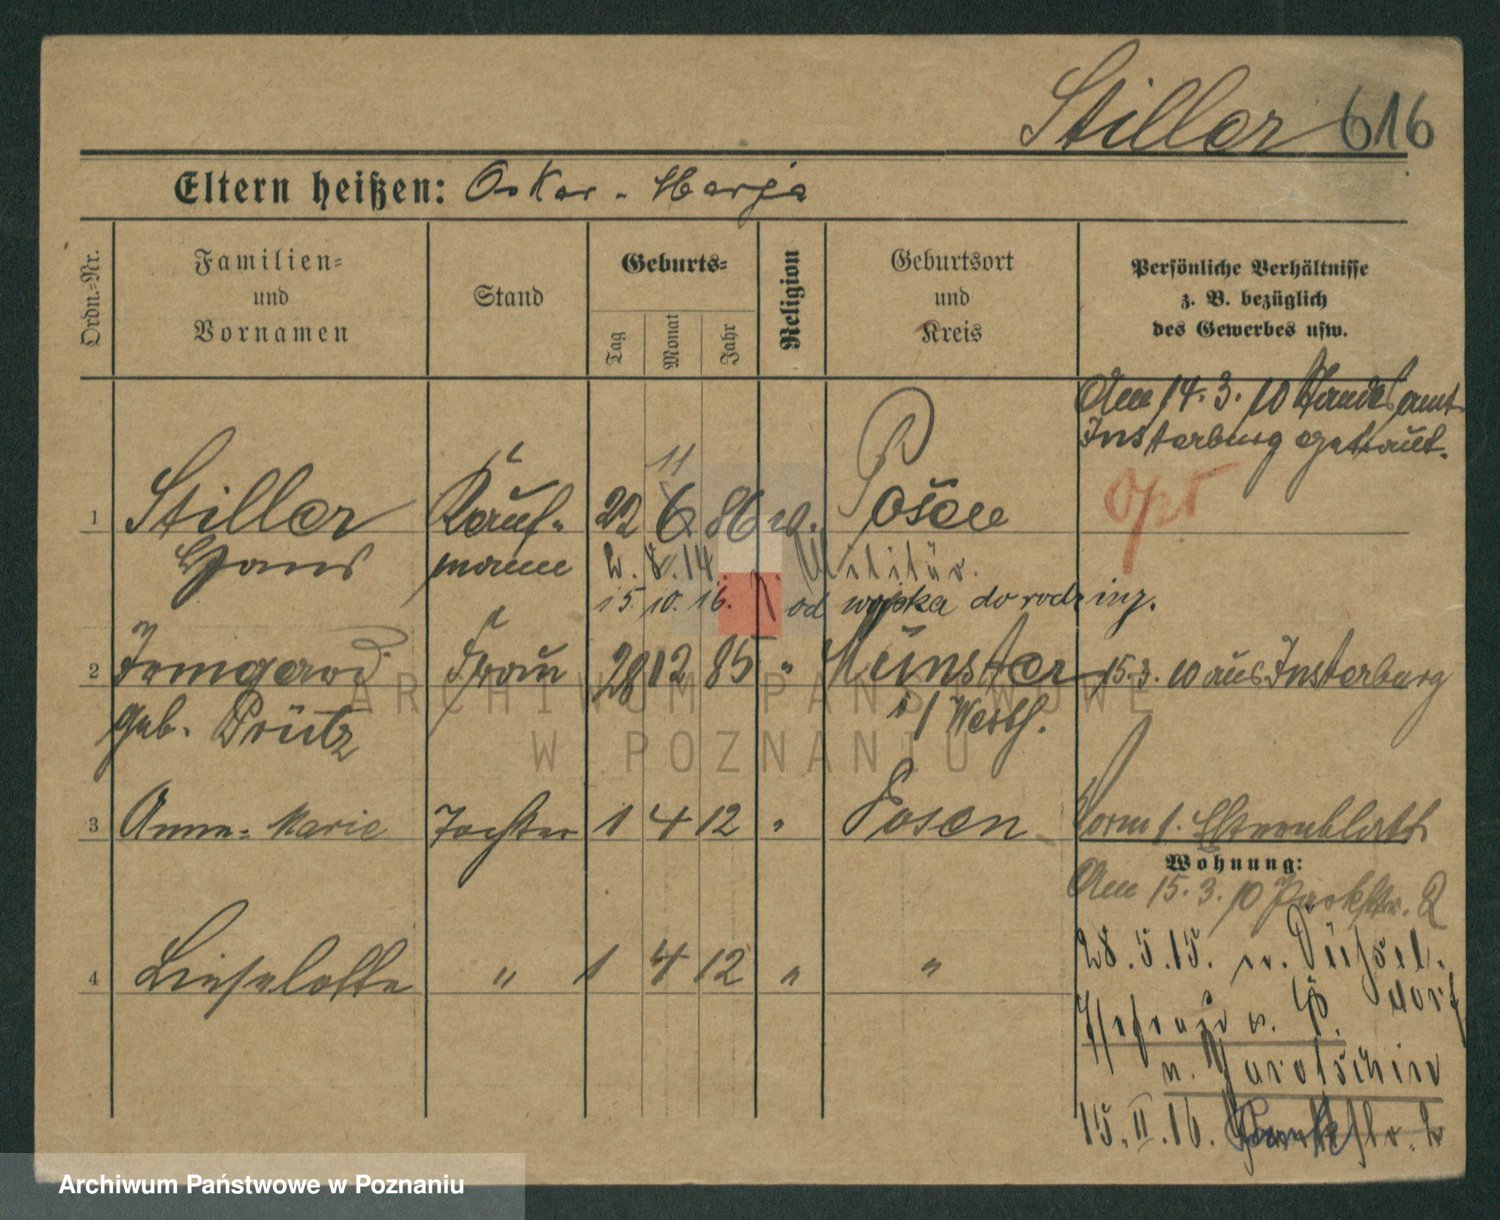 Stiller 616
Eltern heißen: Oskar - Marja
Ordn.=Nr.
Familien=
und
Vornamen
Stand
Geburts=
Tag
Monat
Jahr
Religion
Geburtsort
und
Kreis
Persönliche Verhältnisse
z. B. bezüglich
des Gewerbes usw.
Am 14.3.10 Standesamt
Insterburg getraut.
opt
11
1 Stiller Kauf- 22 6 86 Posen
Hans mann 2. 8. 14. z. Militär.
15. 10. 16. od wojska do rodziny.
2 Irmgard Frau 28 12 85 " Münster 15.3.10 aus Insterburg
geb. Prütz i/Westf.
3 Anne-Marie Tochter 1 4 12 " Posen Vorm f. Elternblatt
Wohnung:
Am 15.3.10 Parkstr. 2
4 Lieselotte " 1 4 12 " "
28.5.15. n. Düssel-
dorf
Ehefrau
n. Jarotschin
15.II.16. Parkstr. 2
ARCHIWUM PAŃSTWOWE
W POZNANIU
Archiwum Państwowe w Poznaniu